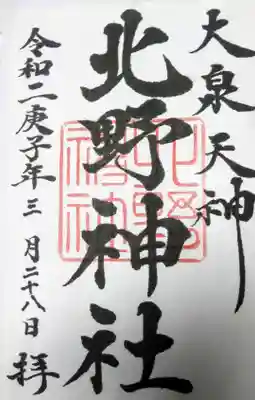 大泉天神
北野神社
令和二庚子年三月二十八日拝
北野神社